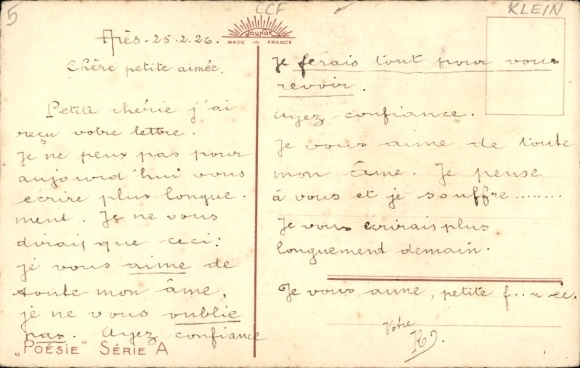 5
Après-25.2.26.
Chère petite aimée.
Petite chérie j'ai
reçu votre lettre.
Je ne peux pas pour
aujourd'hui vous
écrire plus longue
ment. Je ne vous
dirais que ceci:
je vous aime de
toute mon âme,
je ne vous oublie
pas. Ayez confiance
"POÉSIE" SÉRIE A
CCF
MADE IN FRANCE
KLEIN
Je ferais tout pour vous
revoir.
Ayez confiance.
Je vous aime de toute
mon âme. Je pense
à vous et je souffre........
Je vous écrirais plus
longuement demain.
Je vous aime, petite
Votre